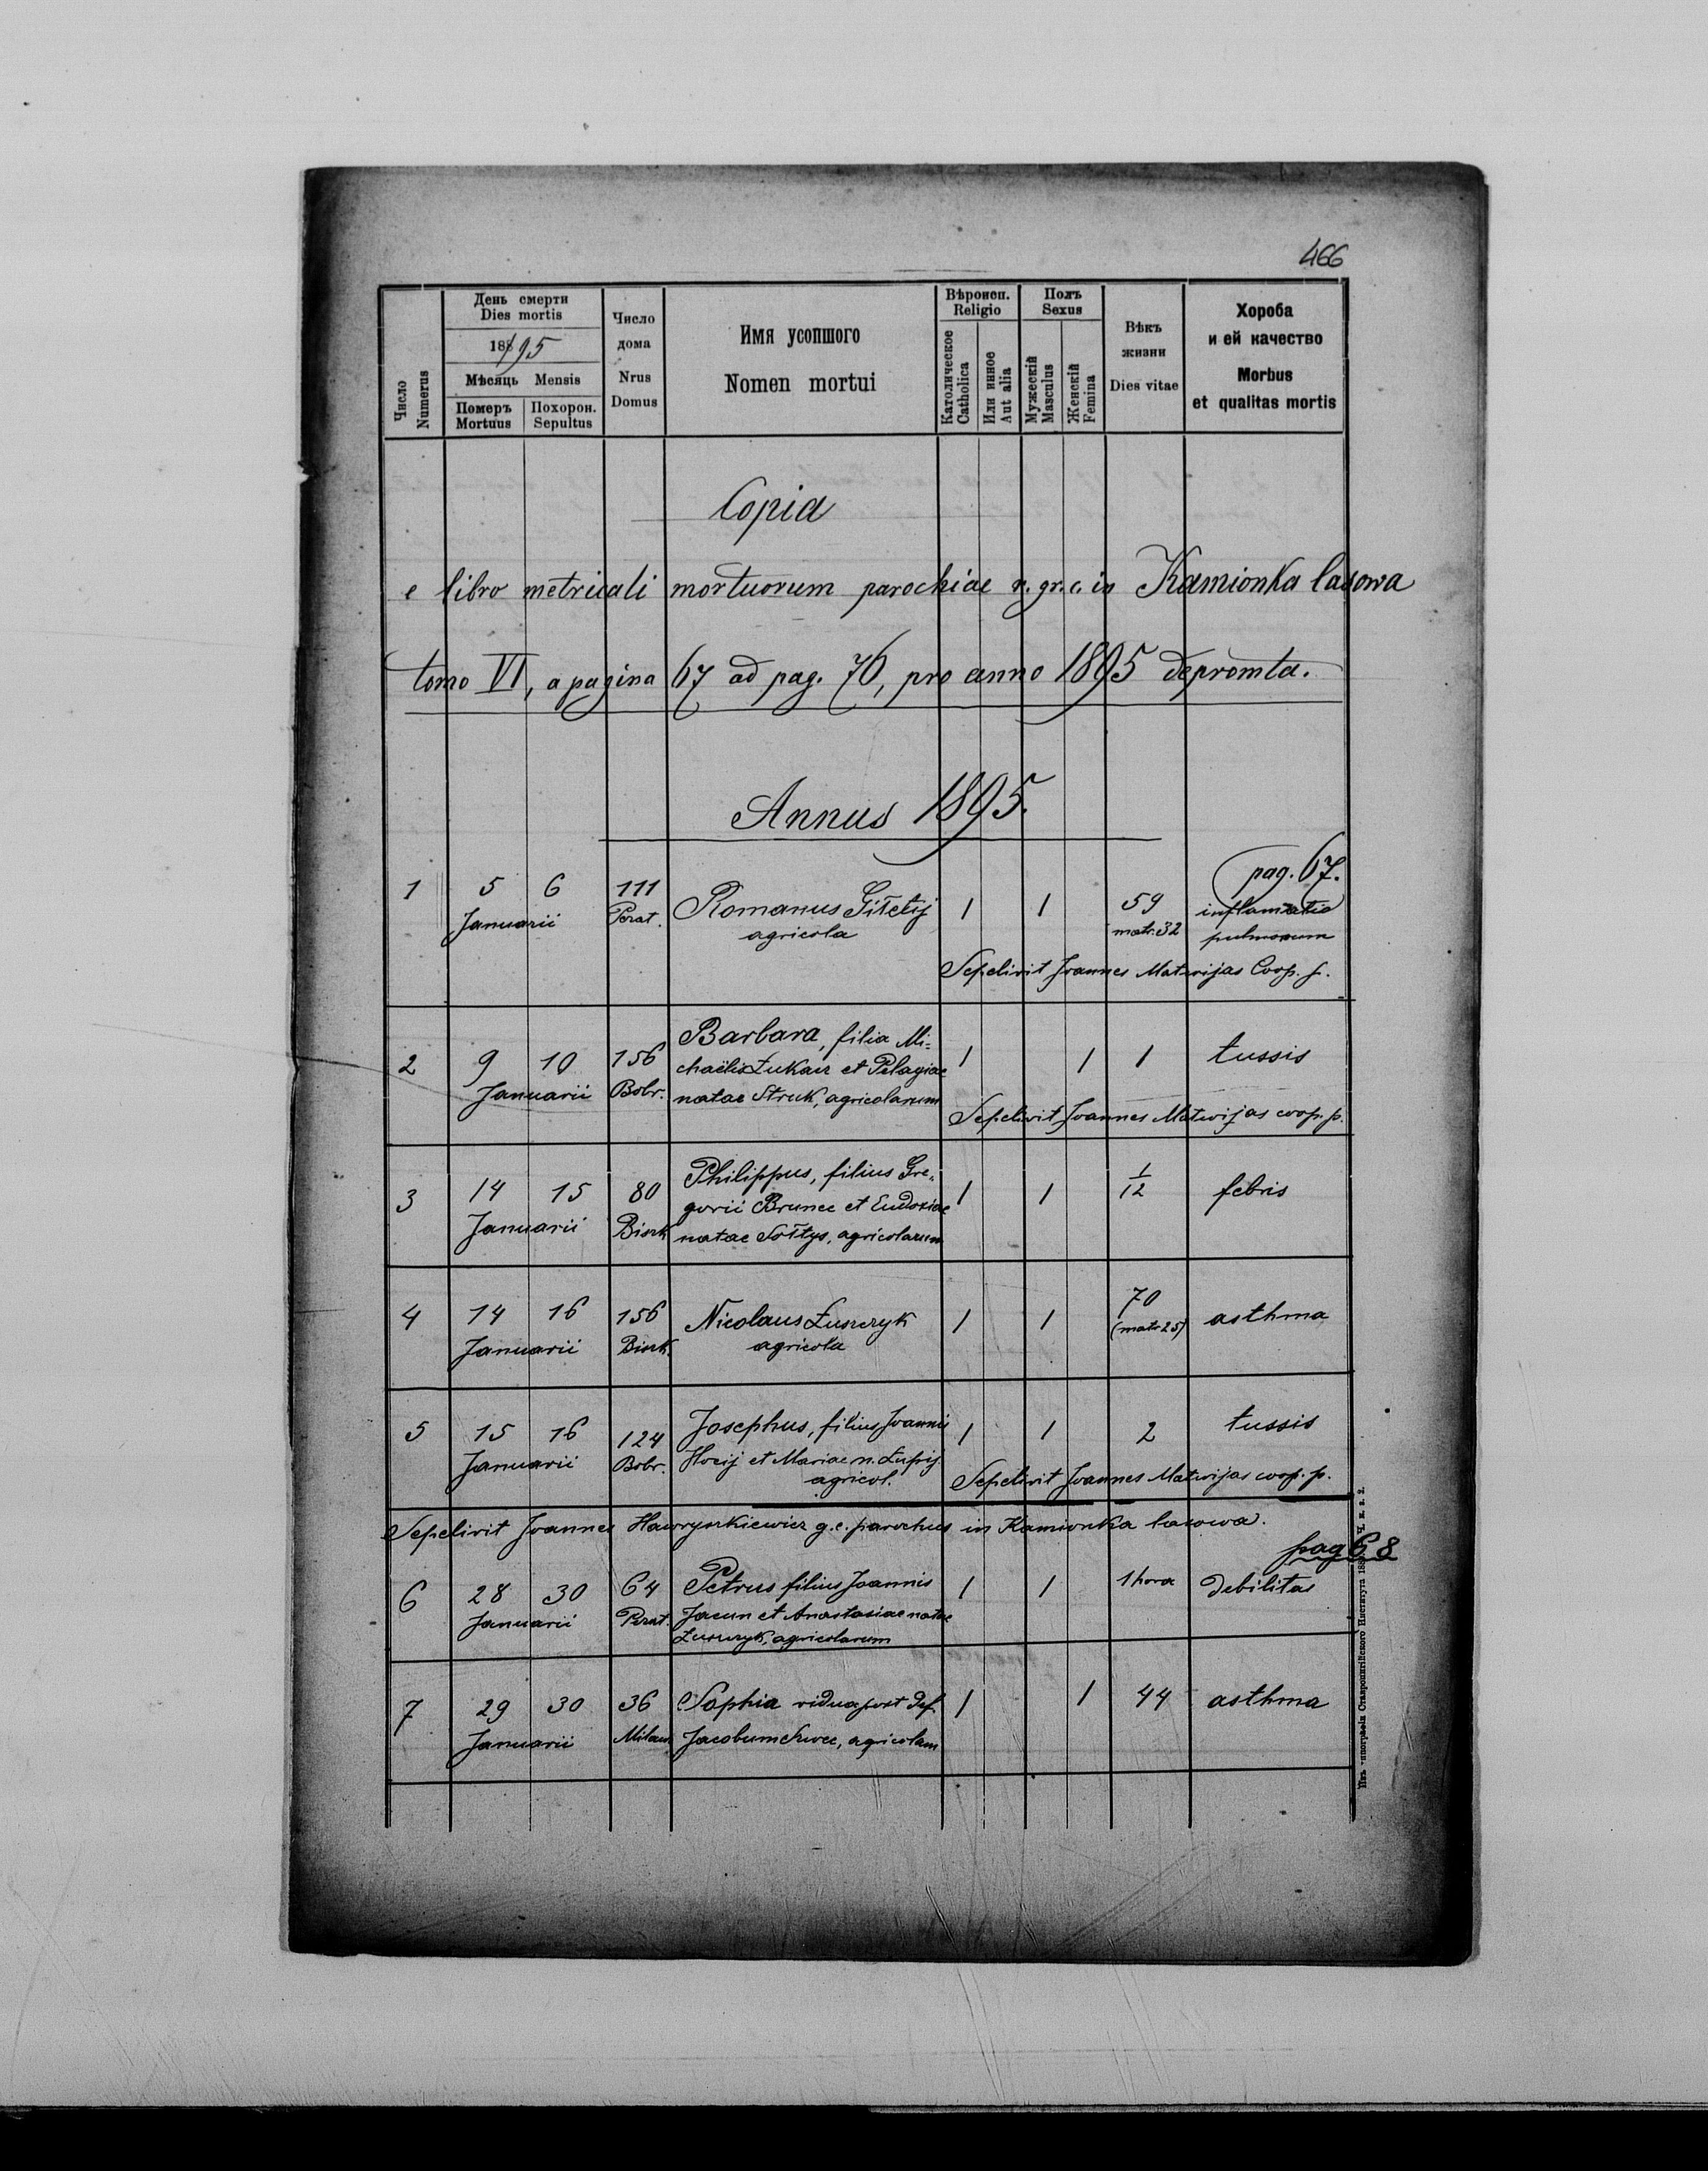 466
Число Numerus
День смерти
Dies mortis
1895
Мѣсяць Mensis
Померъ Похорон.
Mortuus Sepultus
Число
дома
Nrus
Domus
Имя усопшого
Nomen mortui
Вѣроисп.
Religio
Католическое Catholica
Или инное Aut alia
Полъ
Sexus
Мужескій Masculus
Женскій Femina
Вѣкъ
жизни
Dies vitae
Хороба
и ей качество
Morbus
et qualitas mortis
Copia
e libro metricali mortuorum parochiae r. gr. c. in Kamionka lasowa
tomo VI, a pagina 67 ad pag. 76, pro anno 1895 depromta.
Annus 1895.
pag. 67.
1 5 6 111 Romanus 1 1 59 inflamatio
Januarii agricola matr. 32 pulmonum
Sepelivit Joannes Matwijas Coop. p.
2 9 10 156 Barbara, filia Mi= 1 1 1 tussis
Januarii Bobr. chaëlis et Pelagiae
natae Struk, agricolarum
Sepelivit Joannes Matwijas coop. p.
3 14 15 80 Philippus, filius Gre= 1 1 1/12 febris
Januarii gorii Brunec et Eudoxiae
natae Sołtys, agricolarum
4 14 16 156 Nicolaus Łuszczyk 1 1 70 asthma
Januarii agricola (matr 25)
5 15 16 124 Josephus, filius Joannis 1 1 2 tussis
Januarii Bobr. et Mariae n.
agricol. Sepelivit Joannes Matwijas coop. p.
Sepelivit Joannes Hawryszkiewicz g. c. parochus in Kamionka lasowa.
pag 68
6 28 30 64 Petrus filius Joannis 1 1 1 hora debilitas
Januarii et Anastasiae natae
Łuszczyk, agricolarum
7 29 30 36 Sophia vidua post def. 1 1 44 asthma
Januarii Jacobum Szwec, agricolam